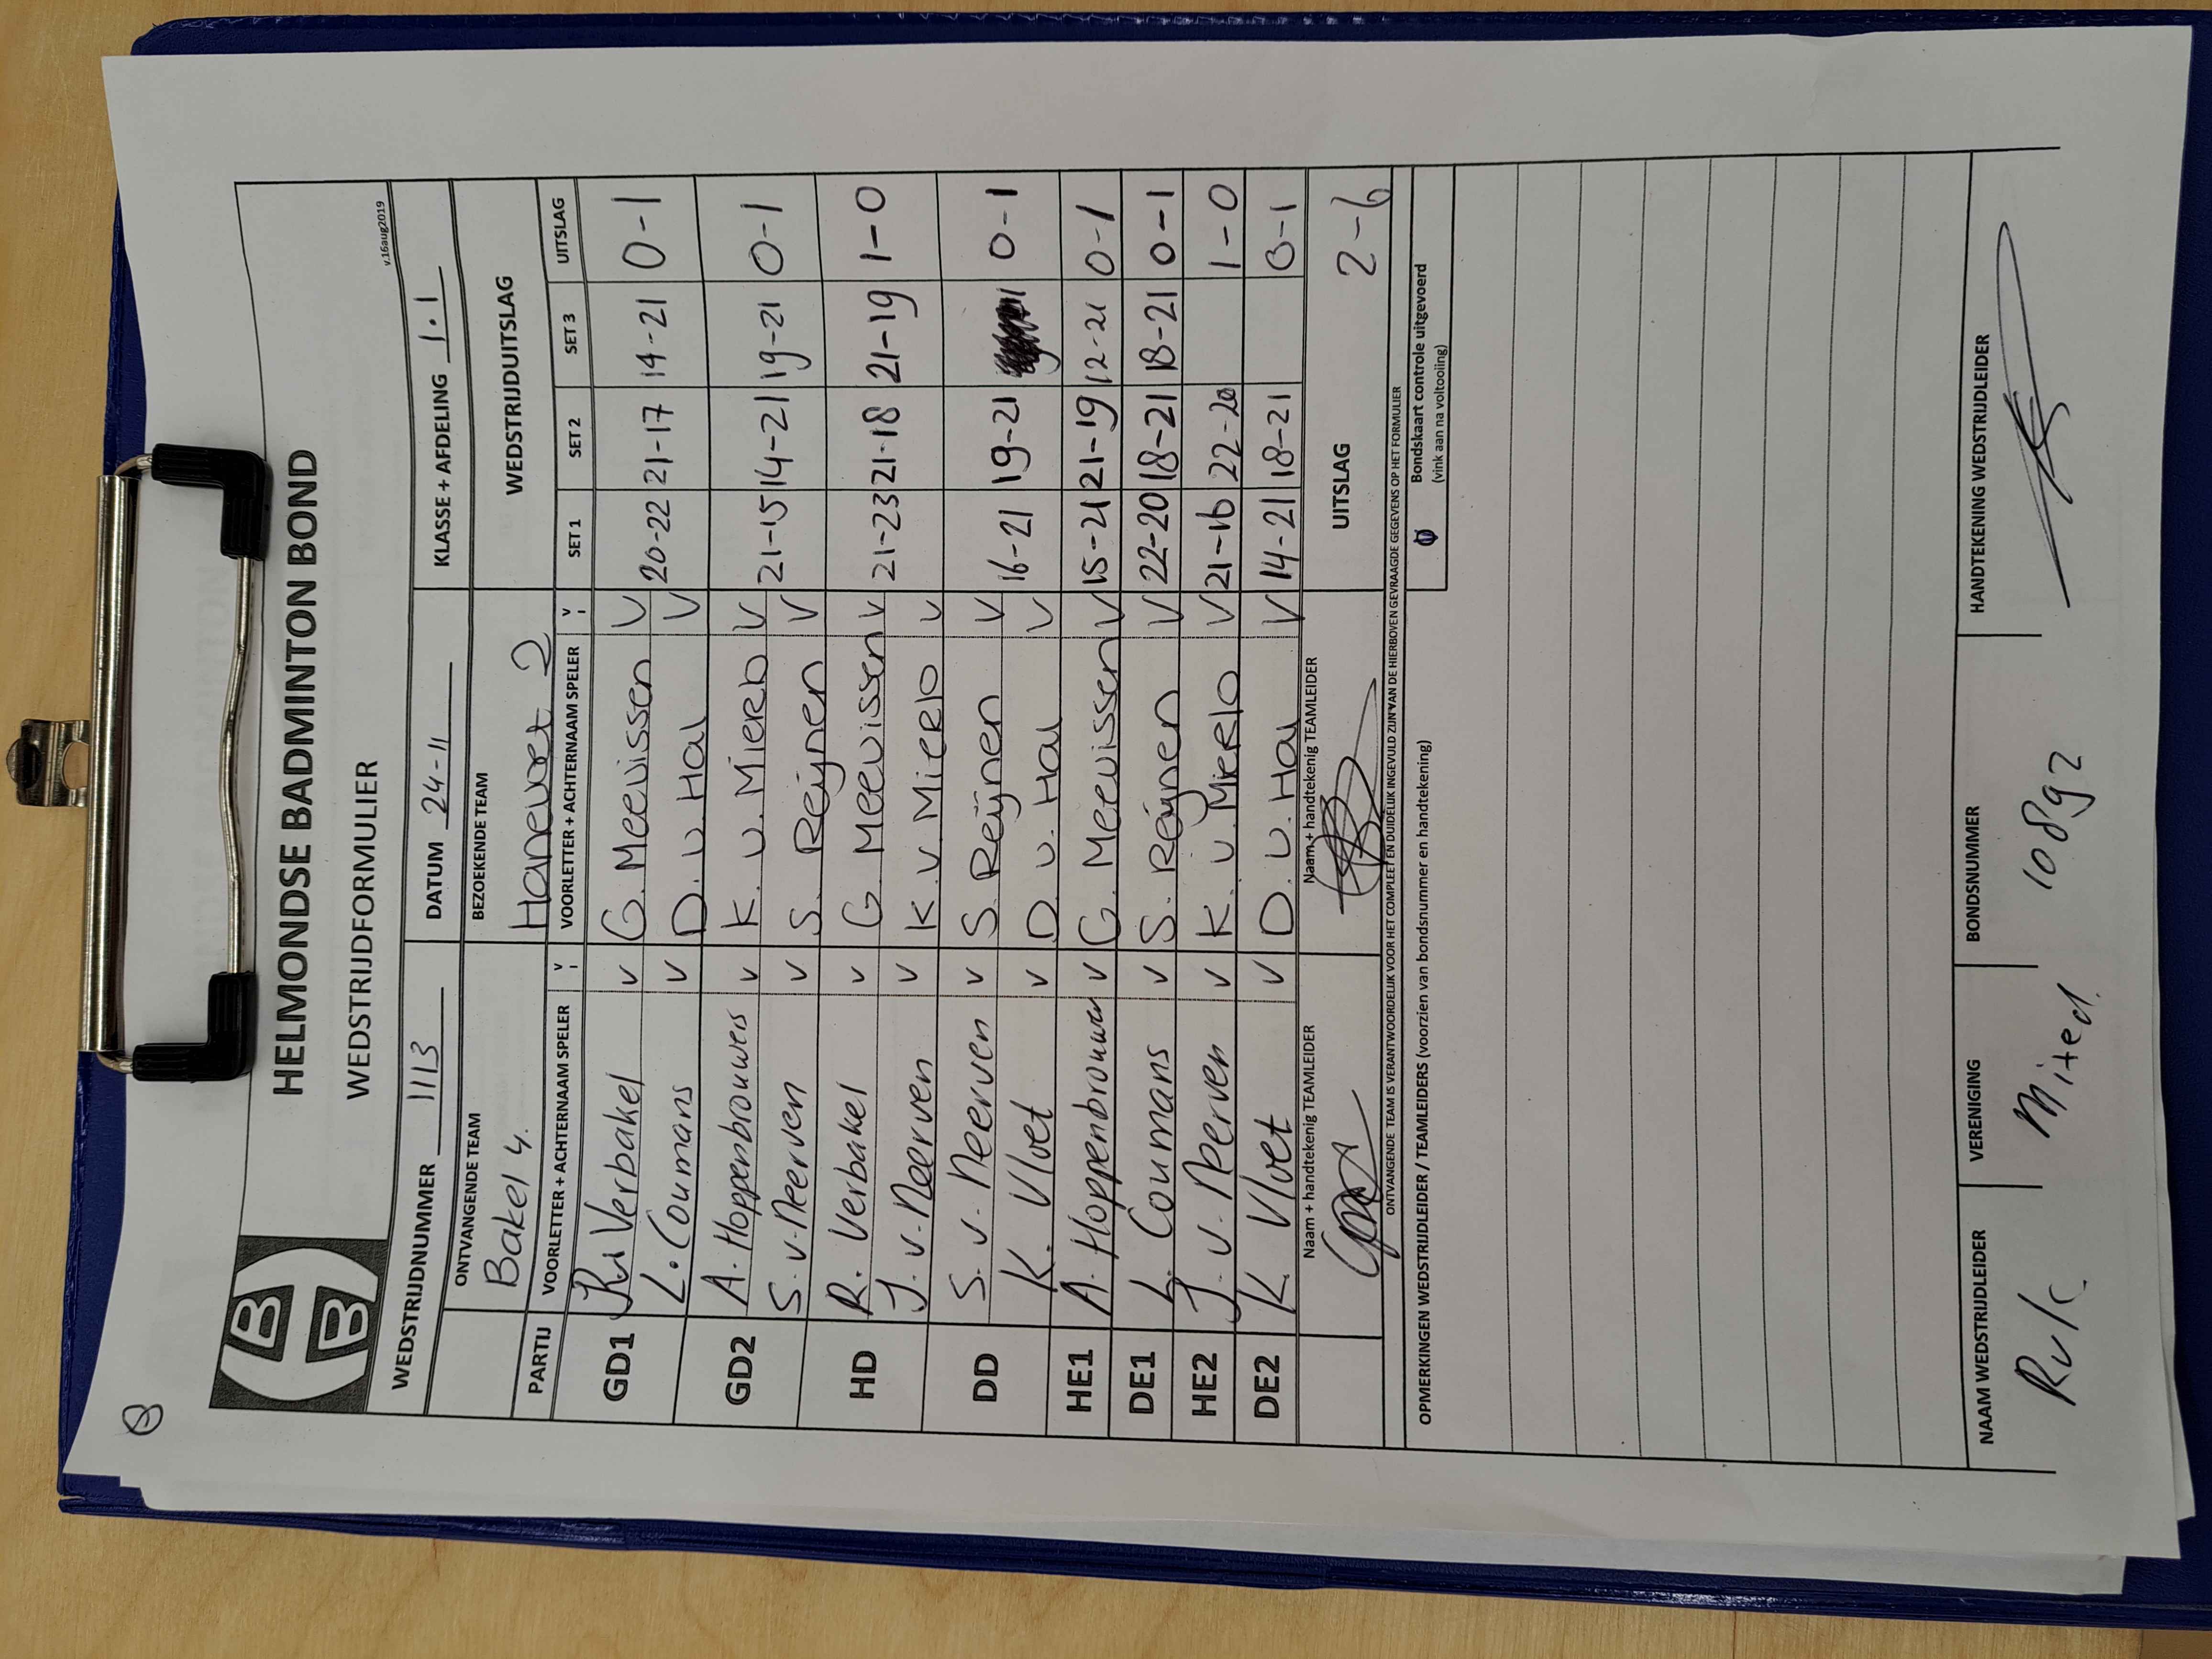 HELMONDSE BADMINTON BOND
WEDSTRIJDFORMULIER
v.16aug2019
WEDSTRIJDNUMMER 1113 DATUM 24-11 KLASSE + AFDELING 1.1
ONTVANGENDE TEAM BEZOEKENDE TEAM WEDSTRIJDUITSLAG
Bakel 4. Hanevoet 2
PARTIJ VOORLETTER + ACHTERNAAM SPELER V VOORLETTER + ACHTERNAAM SPELER V SET 1 SET 2 SET 3 UITSLAG
GD1 R. Verbakel v G. Meevissen V 20-22 21-17 14-21 0-1
L. Coumans v D. v. Hal V
GD2 A. Hoppenbrouwers v K. v. Mierlo V 21-15 14-21 19-21 0-1
S. v. Neerven v S. Reijnen V
HD R. Verbakel v G Meevissen v 21-23 21-18 21-19 1-0
J. v. Neerven v K. v. Mierlo v
DD S. v. Neerven v S. Reijnen V 16-21 19-21 0-1
K. Vlvet v D v. Hal V
HE1 A. Hoppenbrouwers v G. Meevissen V 15-21 21-19 12-21 0-1
DE1 L. Coumans v S. Reijnen V 22-20 18-21 18-21 0-1
HE2 J. v. Neerven v K. v. Mierlo V 21-16 22-20 1-0
DE2 K. Vlvet v D. v. Hal V 14-21 18-21 0-1
Naam + handtekenig TEAMLEIDER Naam + handtekenig TEAMLEIDER UITSLAG 2-6
ONTVANGENDE TEAM IS VERANTWOORDELIJK VOOR HET COMPLEET EN DUIDELIJK INGEVULD ZIJN VAN DE HIERBOVEN GEVRAAGDE GEGEVENS OP HET FORMULIER
OPMERKINGEN WEDSTRIJDLEIDER / TEAMLEIDERS (voorzien van bondsnummer en handtekening)
Bondskaart controle uitgevoerd
(vink aan na voltooiing)
NAAM WEDSTRIJDLEIDER VERENIGING BONDSNUMMER HANDTEKENING WEDSTRIJDLEIDER
Mited 10892